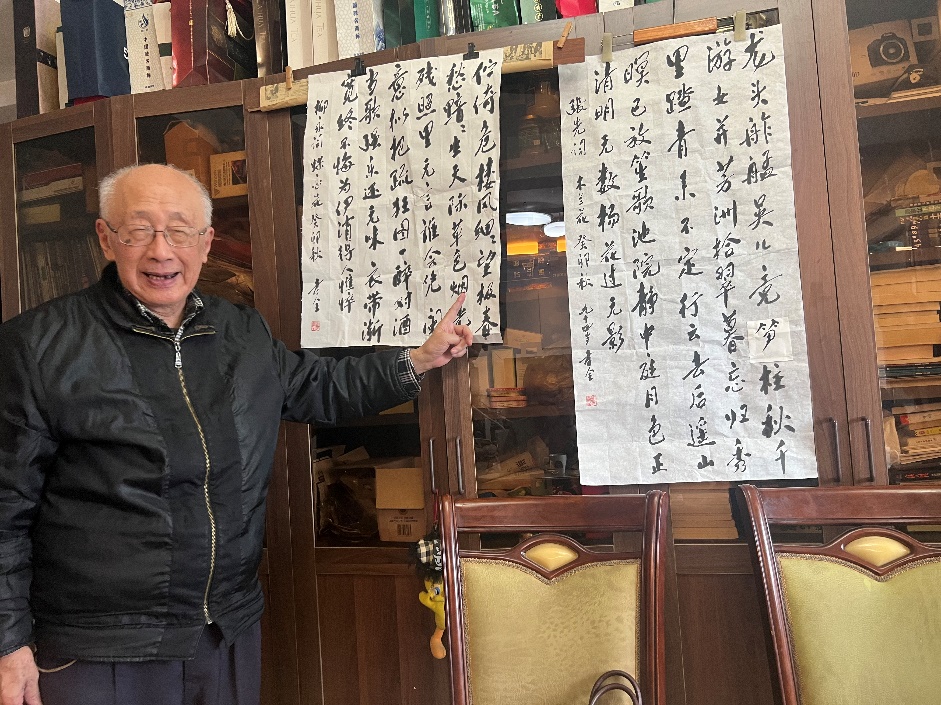 龙头舴艋吴儿竞笋柱秋千
游女并芳洲拾翠暮忘归秀
野踏青来不定行云去后遥山
暝已放笙歌池院静中庭月色正
清明无数杨花过无影
张先词 木兰花 癸卯秋
伫倚危楼风细々望极春
愁黯々生天际草色烟光
残照里无言谁会凭阑
意拟把疏狂图一醉对酒
当歌强乐还无味衣带渐
宽终不悔为伊消得憔悴
柳永词 蝶恋花 癸卯秋